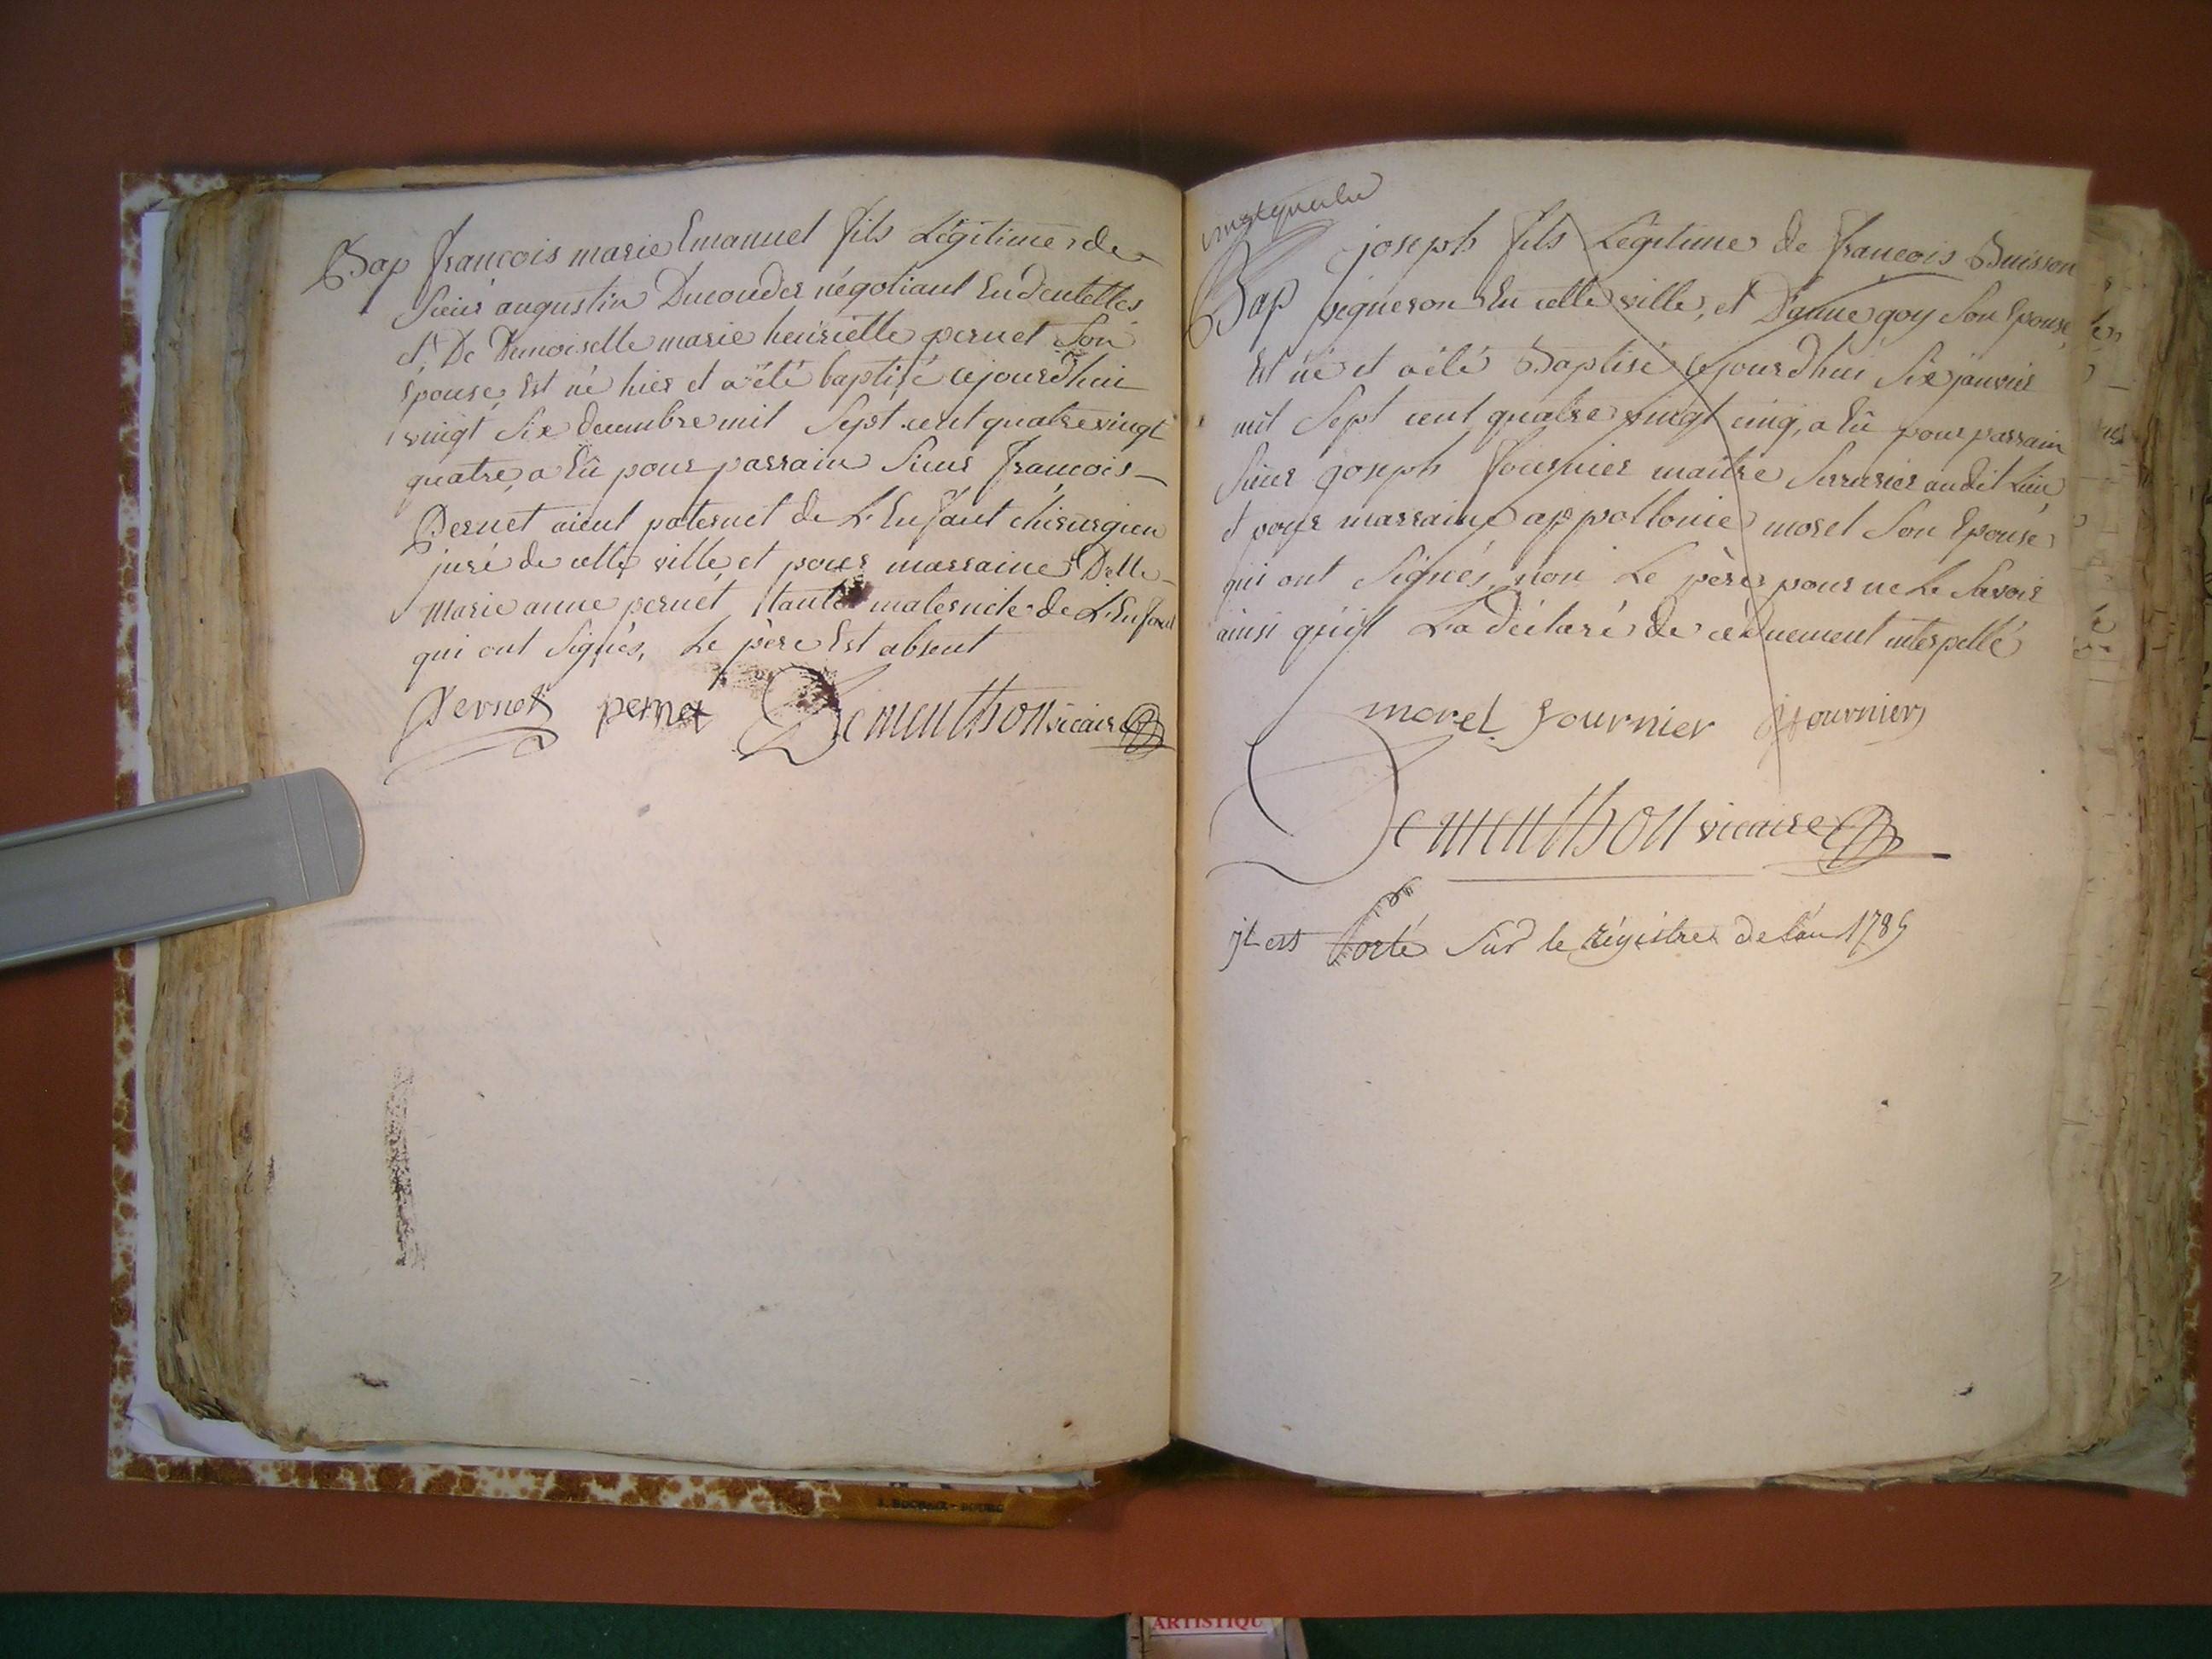 Bap françois marie Emanuel fils Légitime de
Sieur augustin Ducoudes négotiant En dentelles
et De Demoiselle marie henriette pernet Son
Épouse, Est né hier et a été baptisé cejourdhui
vingt Six decembre mil Sept cent quatrevingt
quatre, a Eû pour parrain Sieur françois
Pernet aieul paternel de L'Enfant chirurgien
juré de cette ville et pour marraine Delle
Marie anne pernet, tante maternelle de L'Enfant
qui ont Signés, Le père Est absent
Pernet pernet Dementhon vicaire
vingtquatre
joseph fils Légitime de françois Buisson
Bap vigneron En cette ville, et D'anne goy Son Epouse,
Est né et a été Baptisé cejourdhui Six janvier
mil Sept cent quatre vingt cinq, a Eû pour parrain
Sieur joseph fournier maître Serrurier audit Lieu
et pour marraine appollonie morel Son Epouse
qui ont Signés, non Le père pour ne Le Savoir
ainsi qu'il L'a déclaré de ce Duement interpellé
morel fournier fournier
Dementhon vicaire
jl est Porté Sur le régistre de l'an 1785
ARTISTIQU